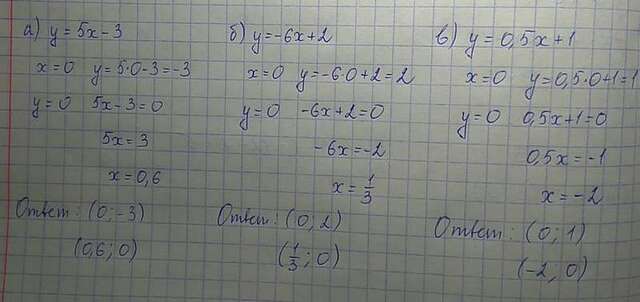 а) y = 5x - 3
x=0 y = 5·0-3=-3
y=0 5x-3=0
5x = 3
x = 0,6
Ответ: (0; -3)
(0,6; 0)
б) y=-6x+2
x=0 y=-6·0+2=2
y=0 -6x+2=0
-6x=-2
x = 1/3
Ответ: (0; 2)
(1/3; 0)
в) y = 0,5x+1
x=0 y=0,5·0+1=1
y=0 0,5x+1=0
0,5x=-1
x=-2
Ответ: (0; 1)
(-2; 0)